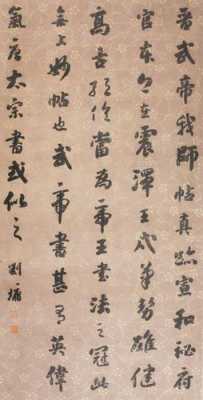 晉武帝我師帖真蹟宣和秘府
官本今在震澤王氏筆勢雄健
高古當為帝王書法之冠此
無上妙帖也武帝書甚有英偉
氣唐太宗書或似之劉墉